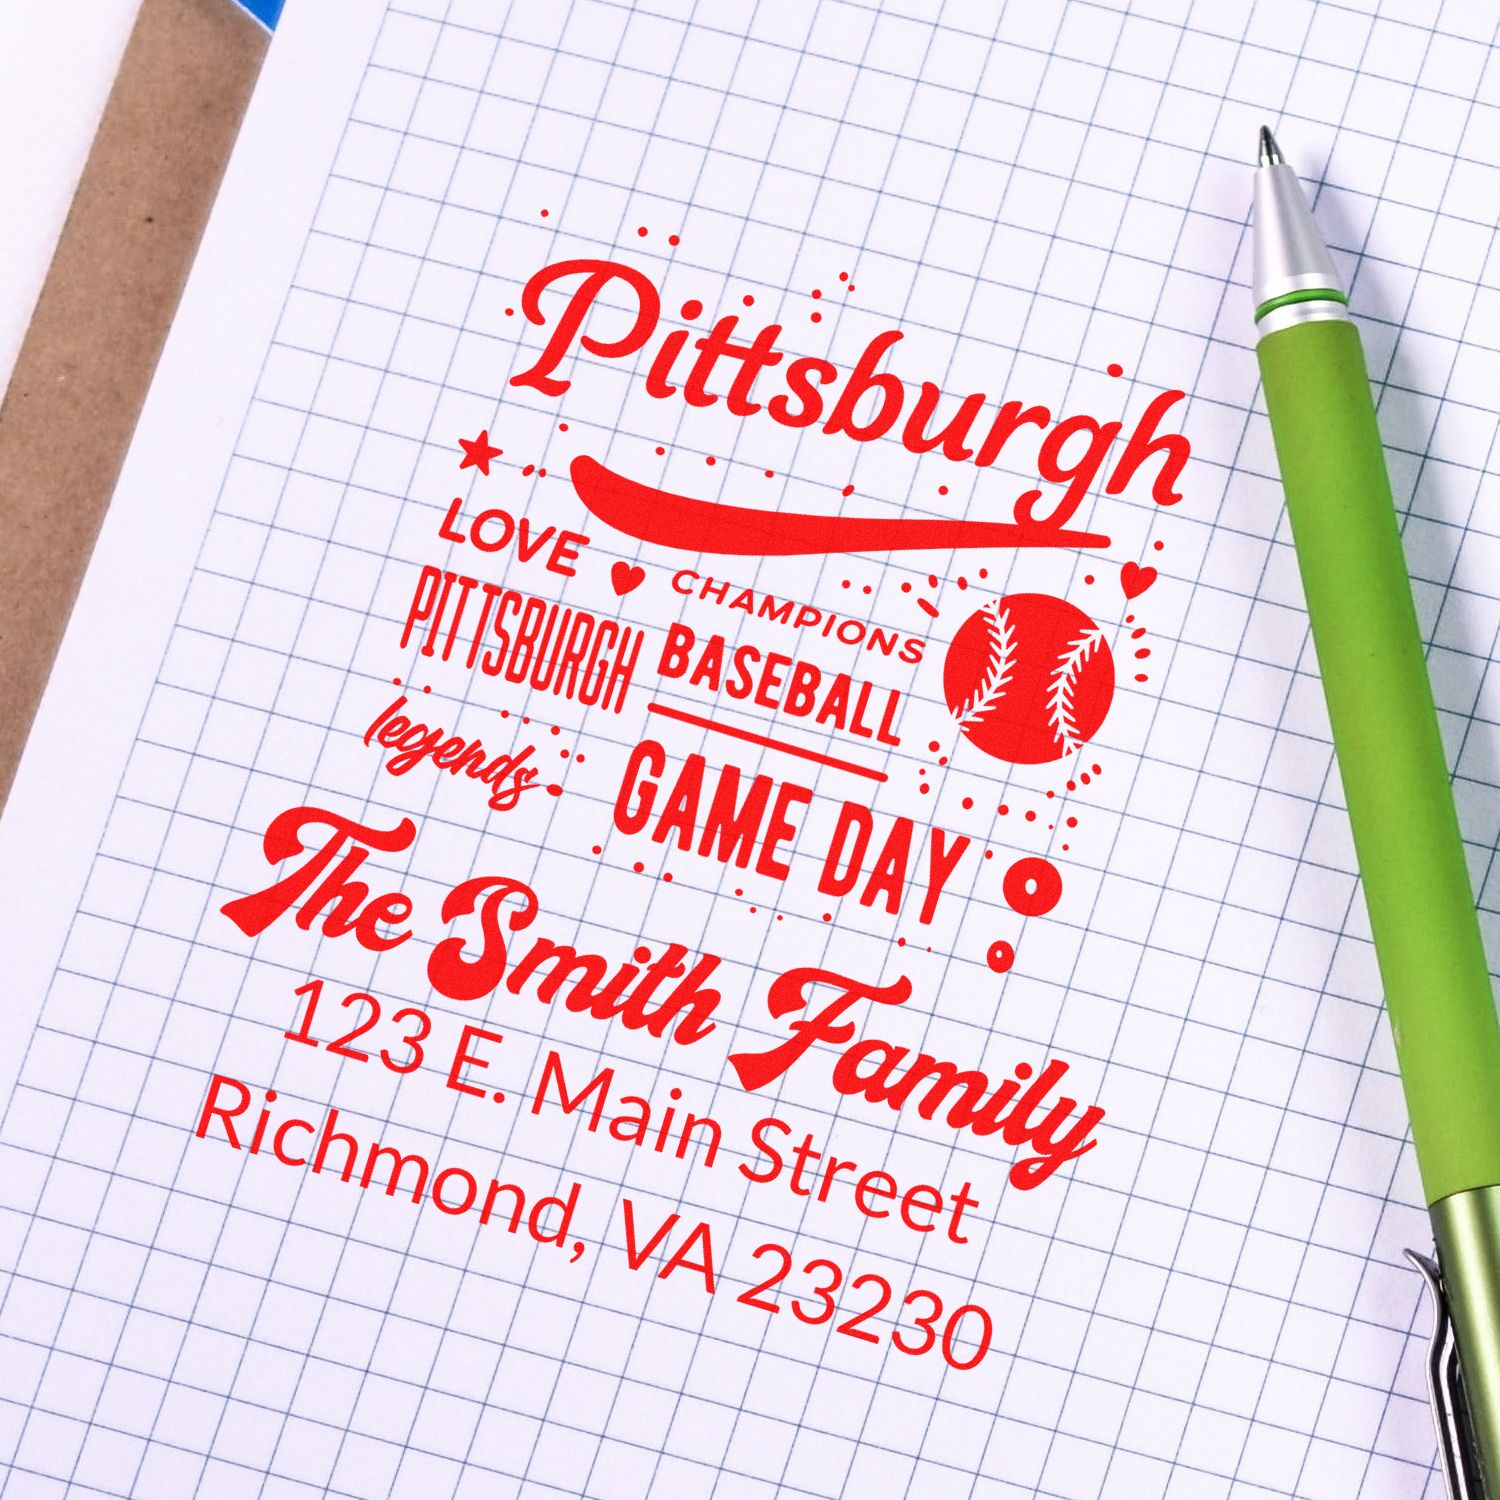 Pittsburgh
LOVE
CHAMPIONS
PITTSBURGH
BASEBALL
legends
GAME DAY
The Smith Family
123 E. Main Street
Richmond, VA 23230